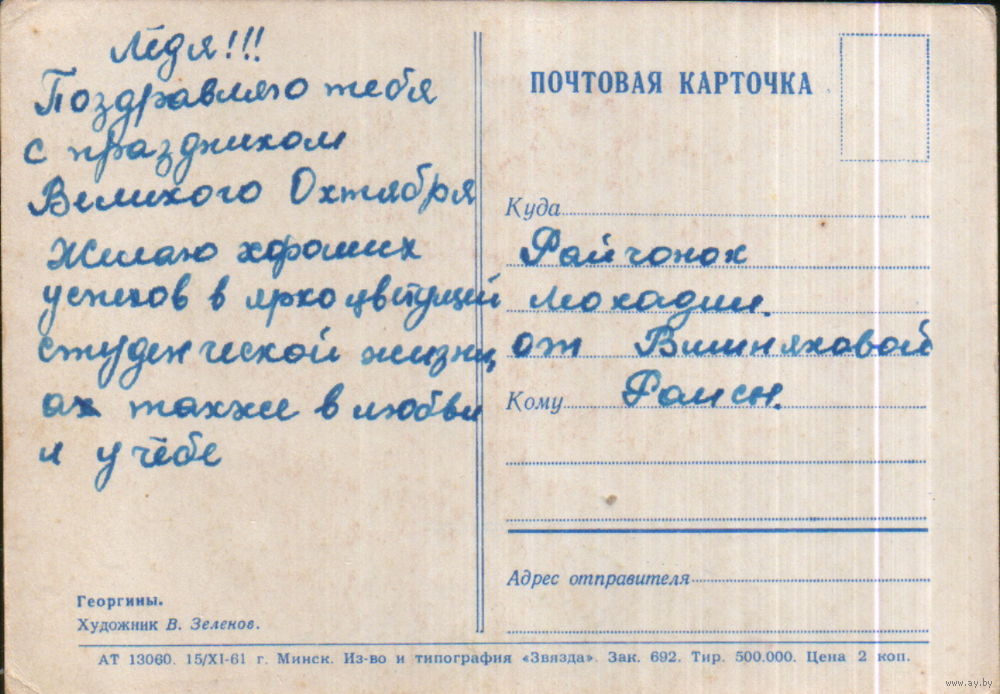 Лёдя!!!
Поздравляю тебя
с праздником
Великого Октября
Желаю хороших
успехов в яркоцветущей
студенческой жизни,
а также в любви
и учёбе
ПОЧТОВАЯ КАРТОЧКА
Куда
Райчонок
Леокадии.
от Вишняковой
Кому Раисы.
Адрес отправителя
Георгины.
Художник В. Зеленов.
АТ 13060. 15/XI-61 г. Минск. Из-во и типография «Звязда». Зак. 692. Тир. 500.000. Цена 2 коп.
www.ay.by